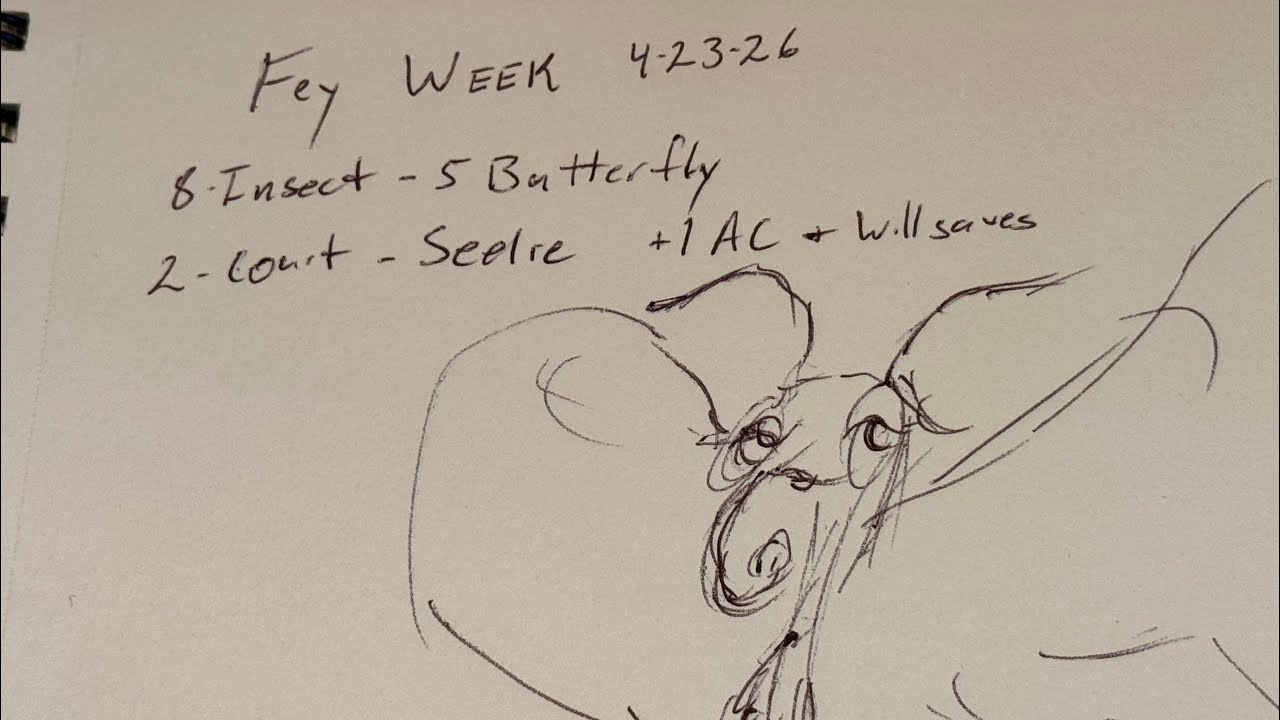 Fey WEEK 4-23-26
8-Insect - 5 Butterfly
2-Court - Seelie +1 AC + Will saves